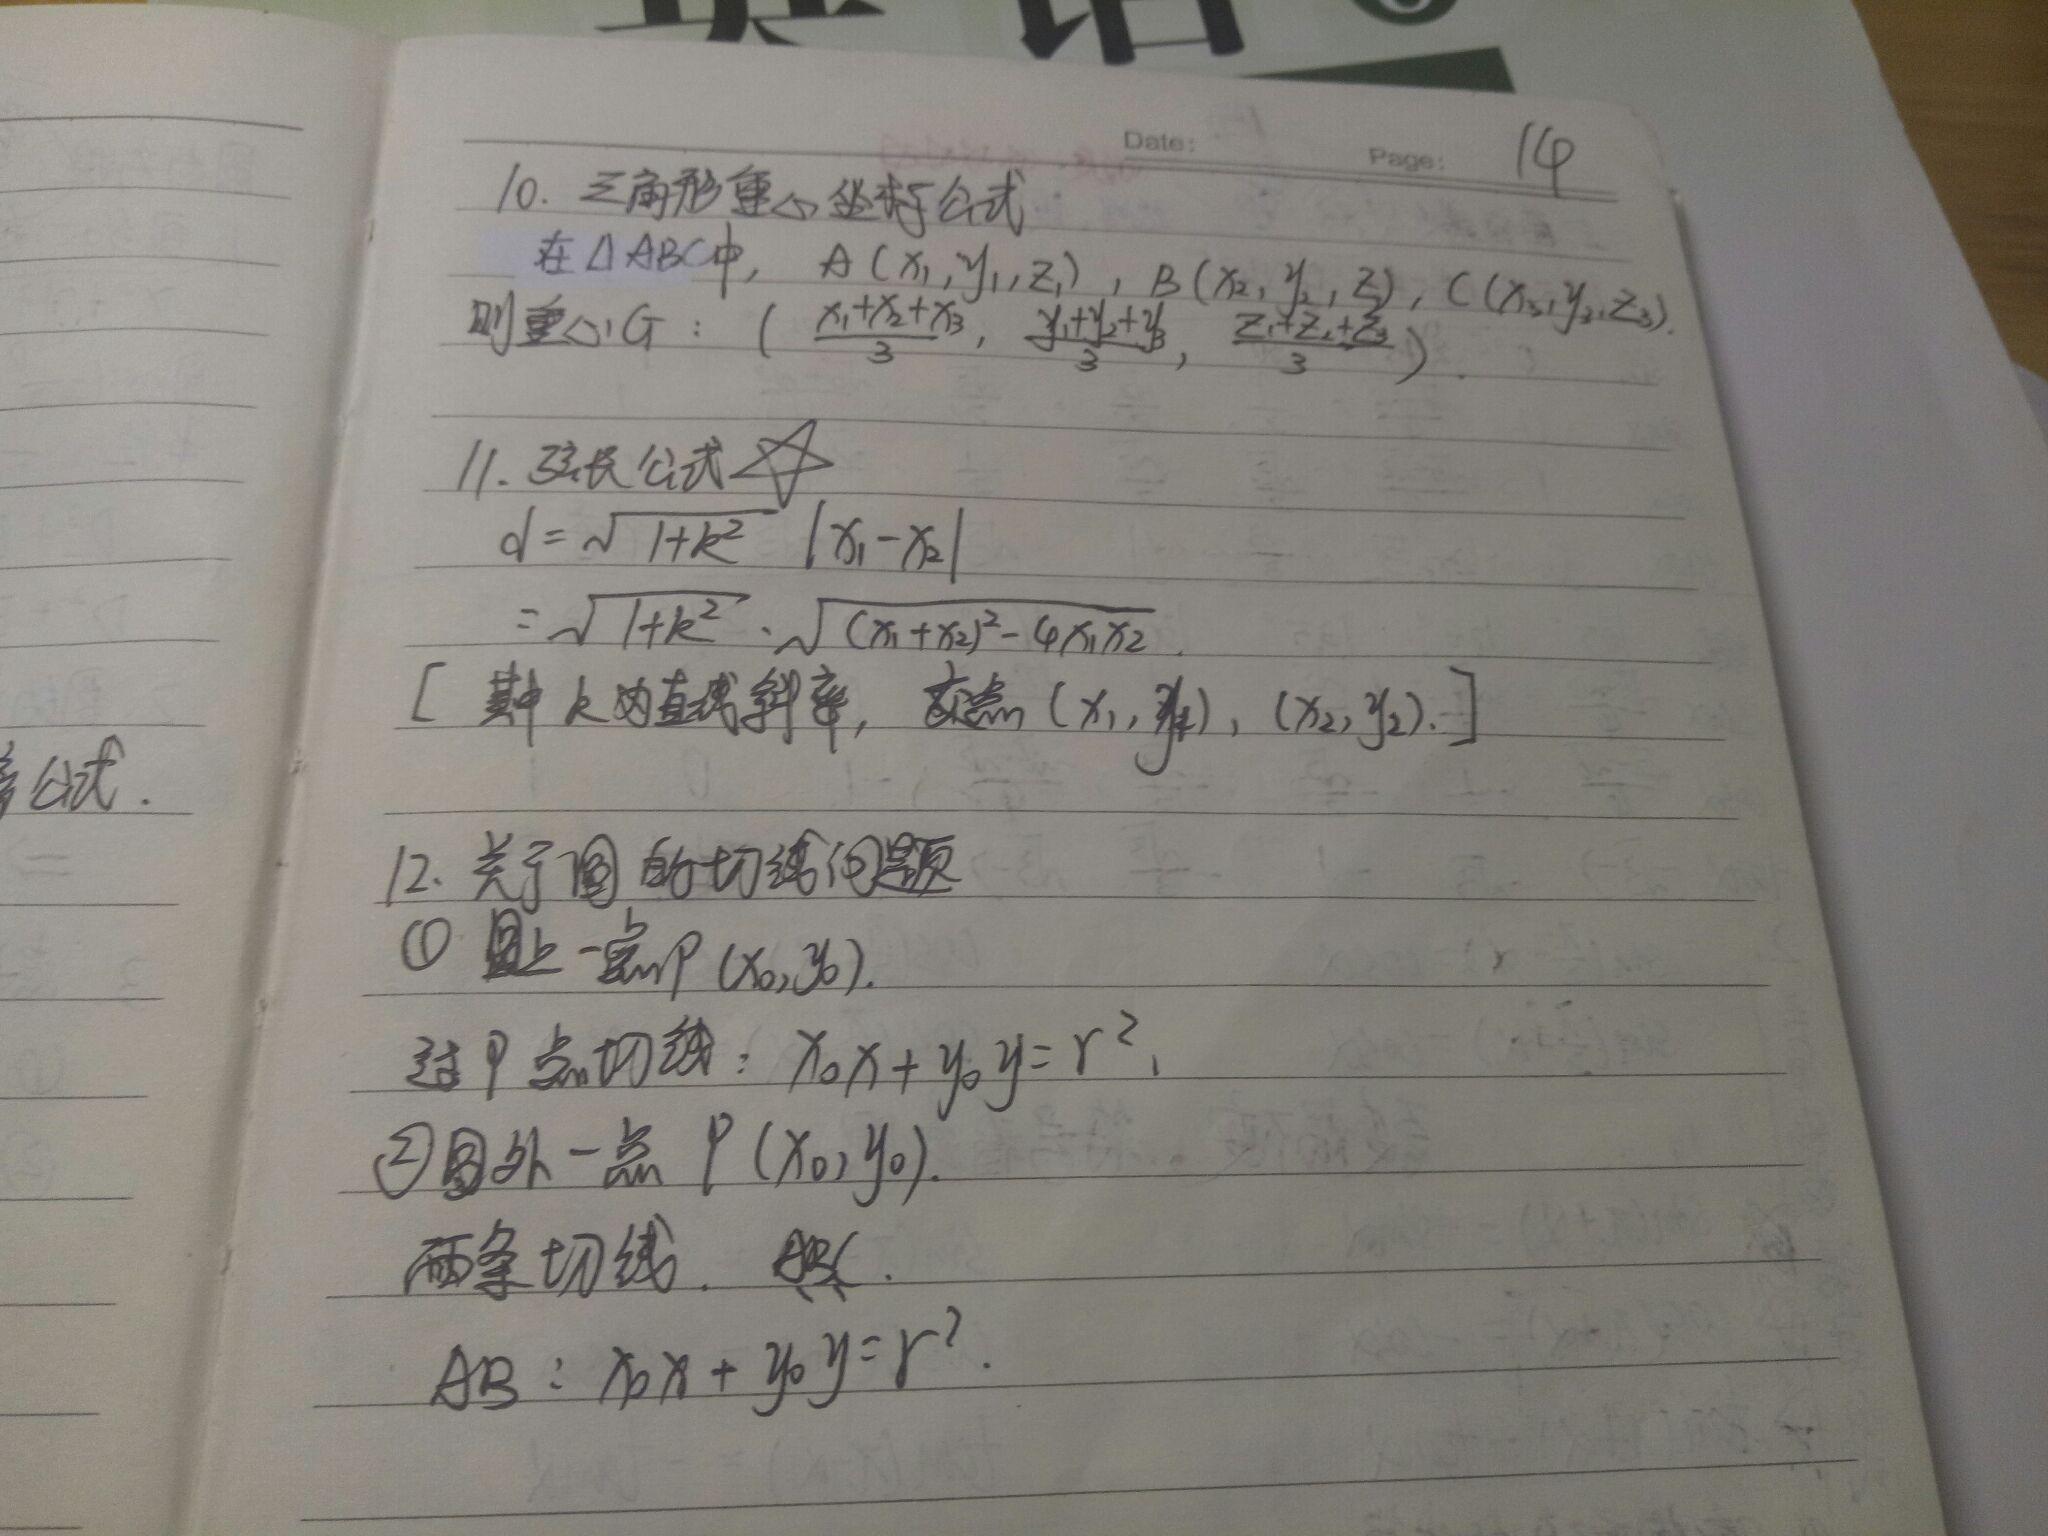 英语
Date:
Page: 14
10. 三角形重心坐标公式
在△ABC中, A(x₁,y₁,z₁), B(x₂,y₂,z₂), C(x₃,y₃,z₃).
则重心G: (x₁+x₂+x₃/3, y₁+y₂+y₃/3, z₁+z₂+z₃/3).
11. 弦长公式☆
d=√(1+k²) |x₁-x₂|
=√(1+k²)·√((x₁+x₂)²-4x₁x₂).
[其中k为直线斜率, 交点(x₁,y₁), (x₂,y₂).]
公式.
12. 关于圆的切线问题
① 圆上一点P(x₀,y₀).
过P点切线: x₀x+y₀y=r²,
②圆外一点P(x₀,y₀).
两条切线.
AB: x₀x+y₀y=r².